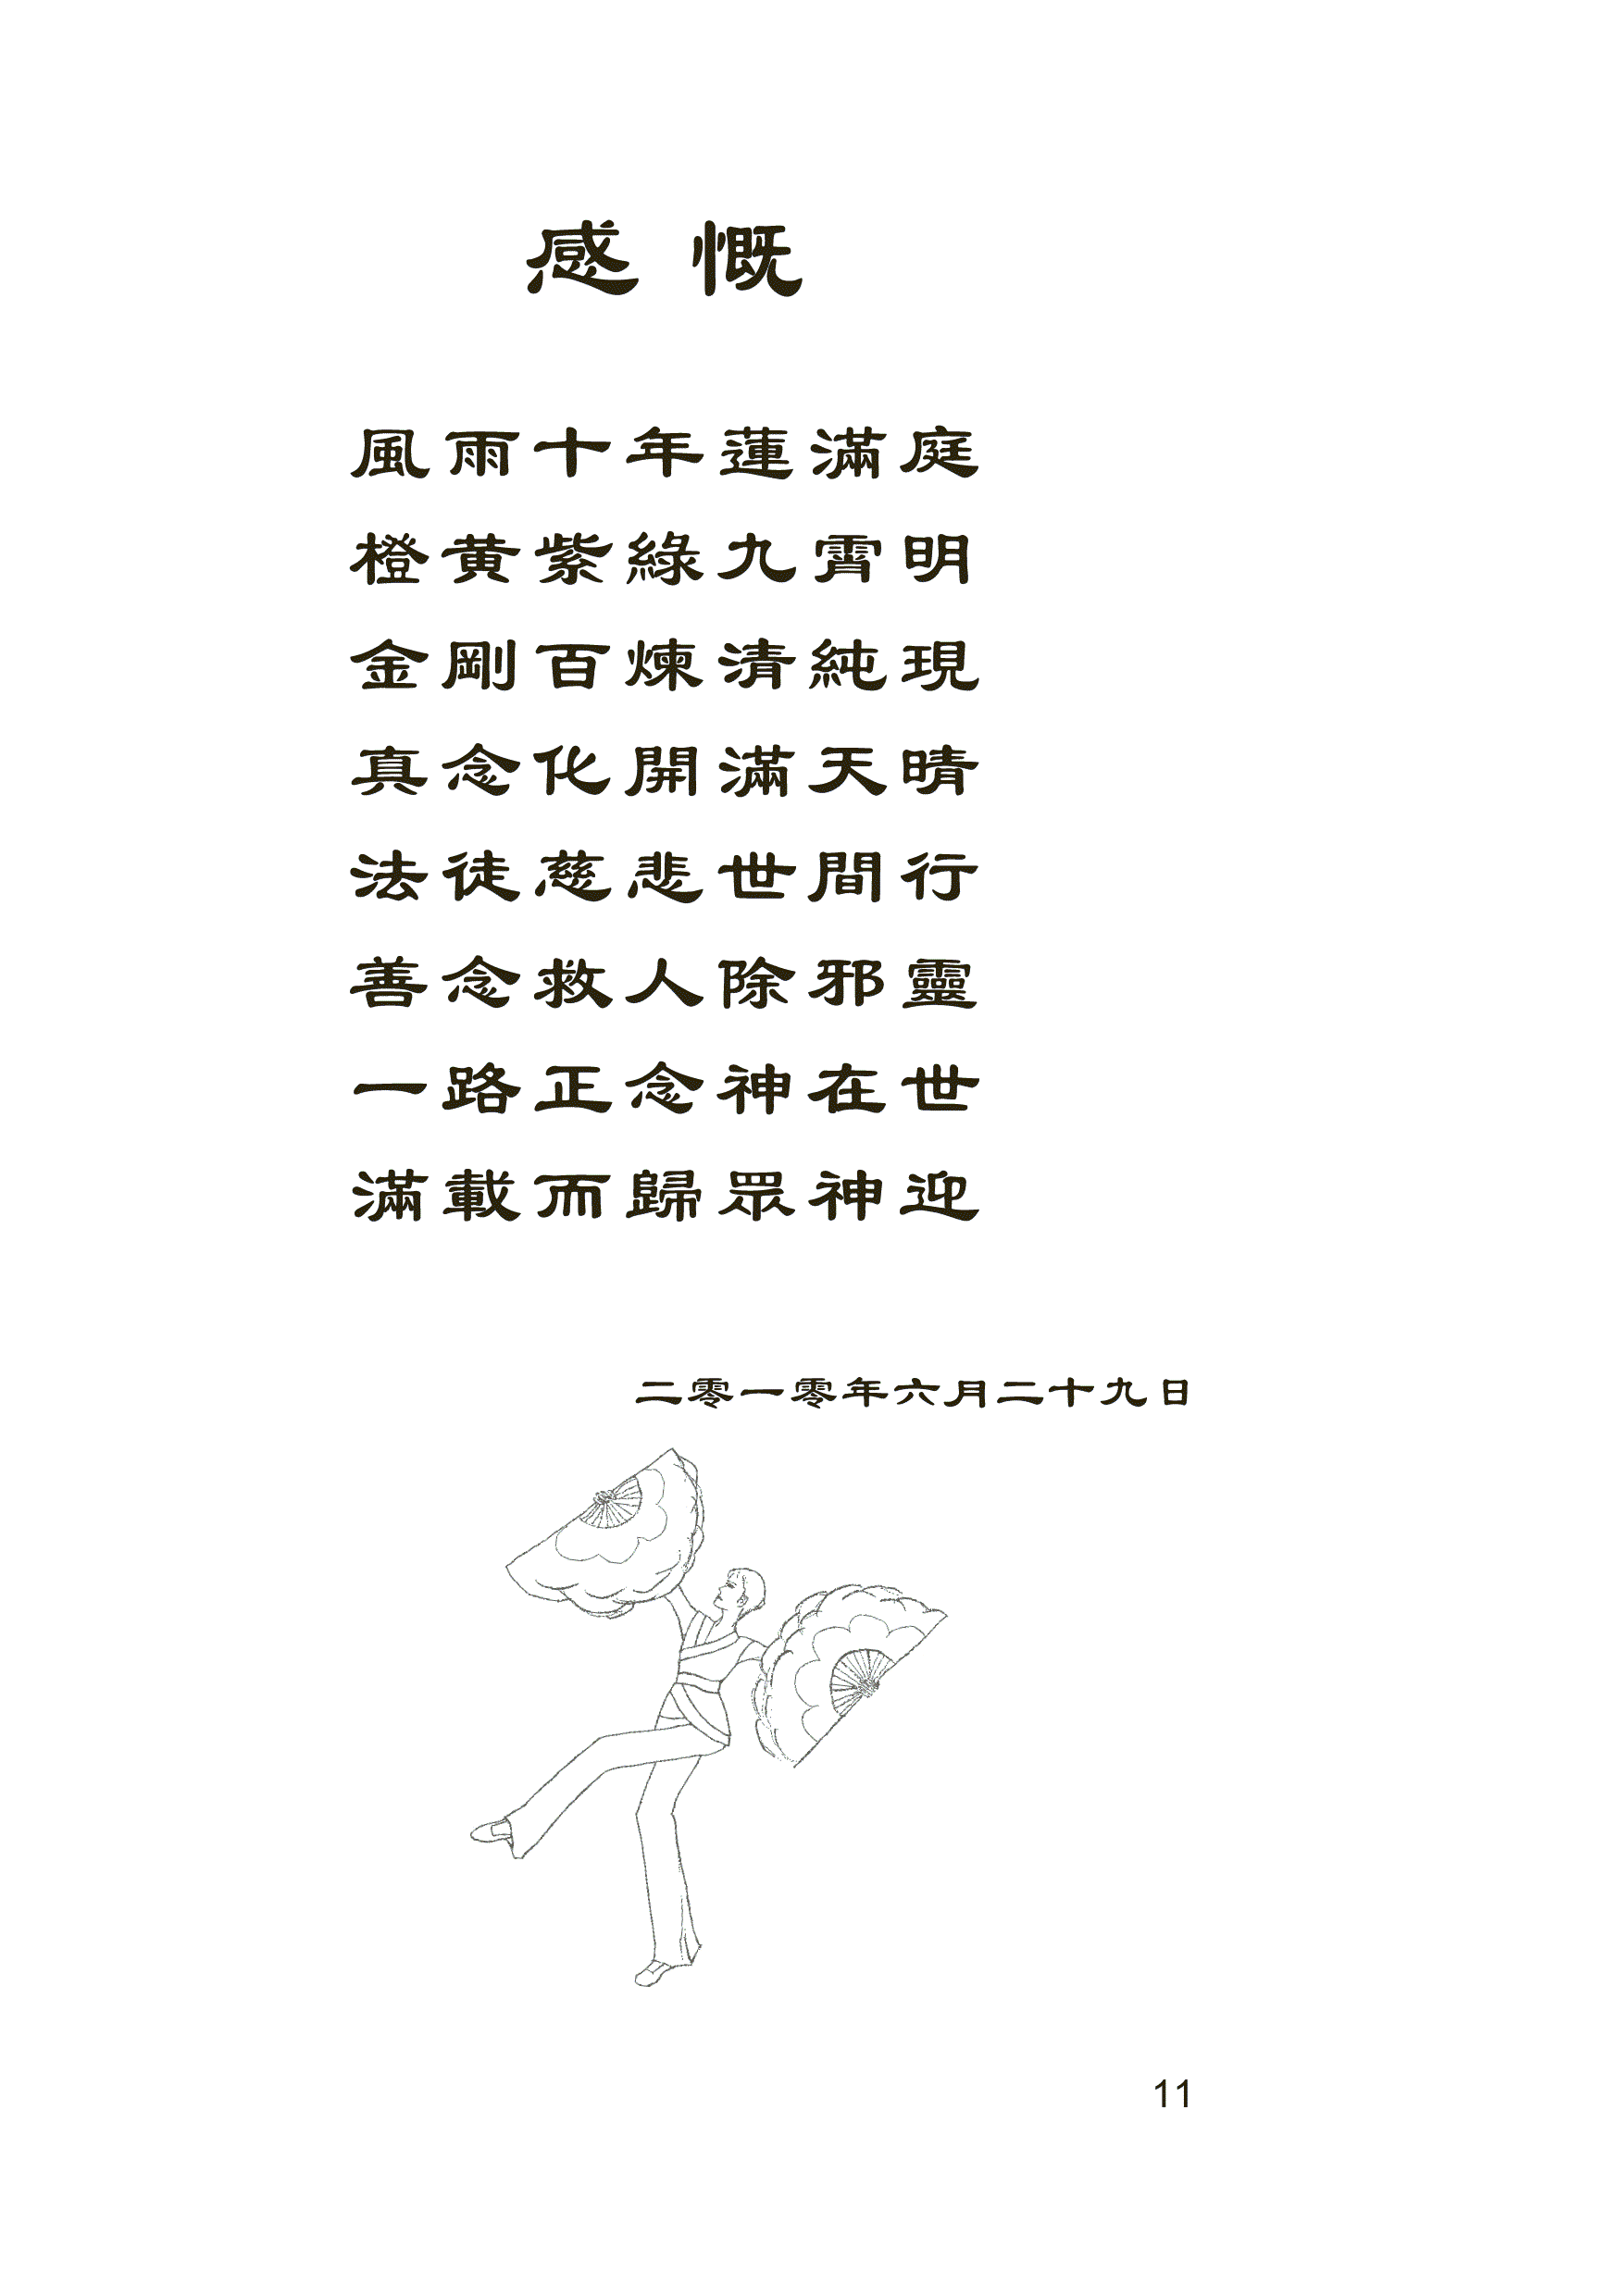 感慨
風雨十年蓮滿庭
橙黄紫綠九霄明
金剛百煉清純現
真念化開滿天晴
法徒慈悲世間行
善念救人除邪靈
一路正念神在世
滿載而歸眾神迎
二零一零年六月二十九日
11